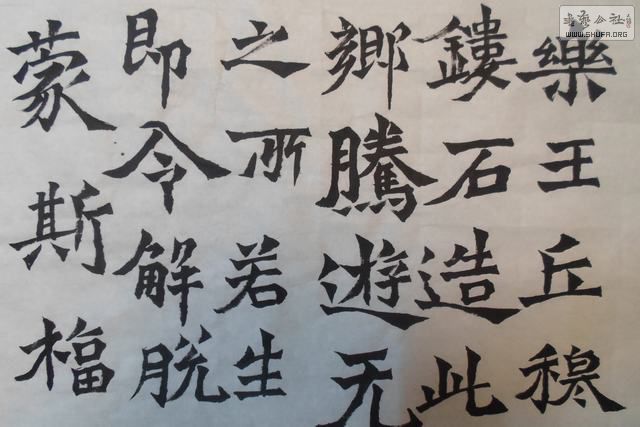 樂王丘穆
鏤石造此
鄉騰遊无
之所若生
即令解脫
蒙斯福
书艺公社
WWW.SHUFA.ORG